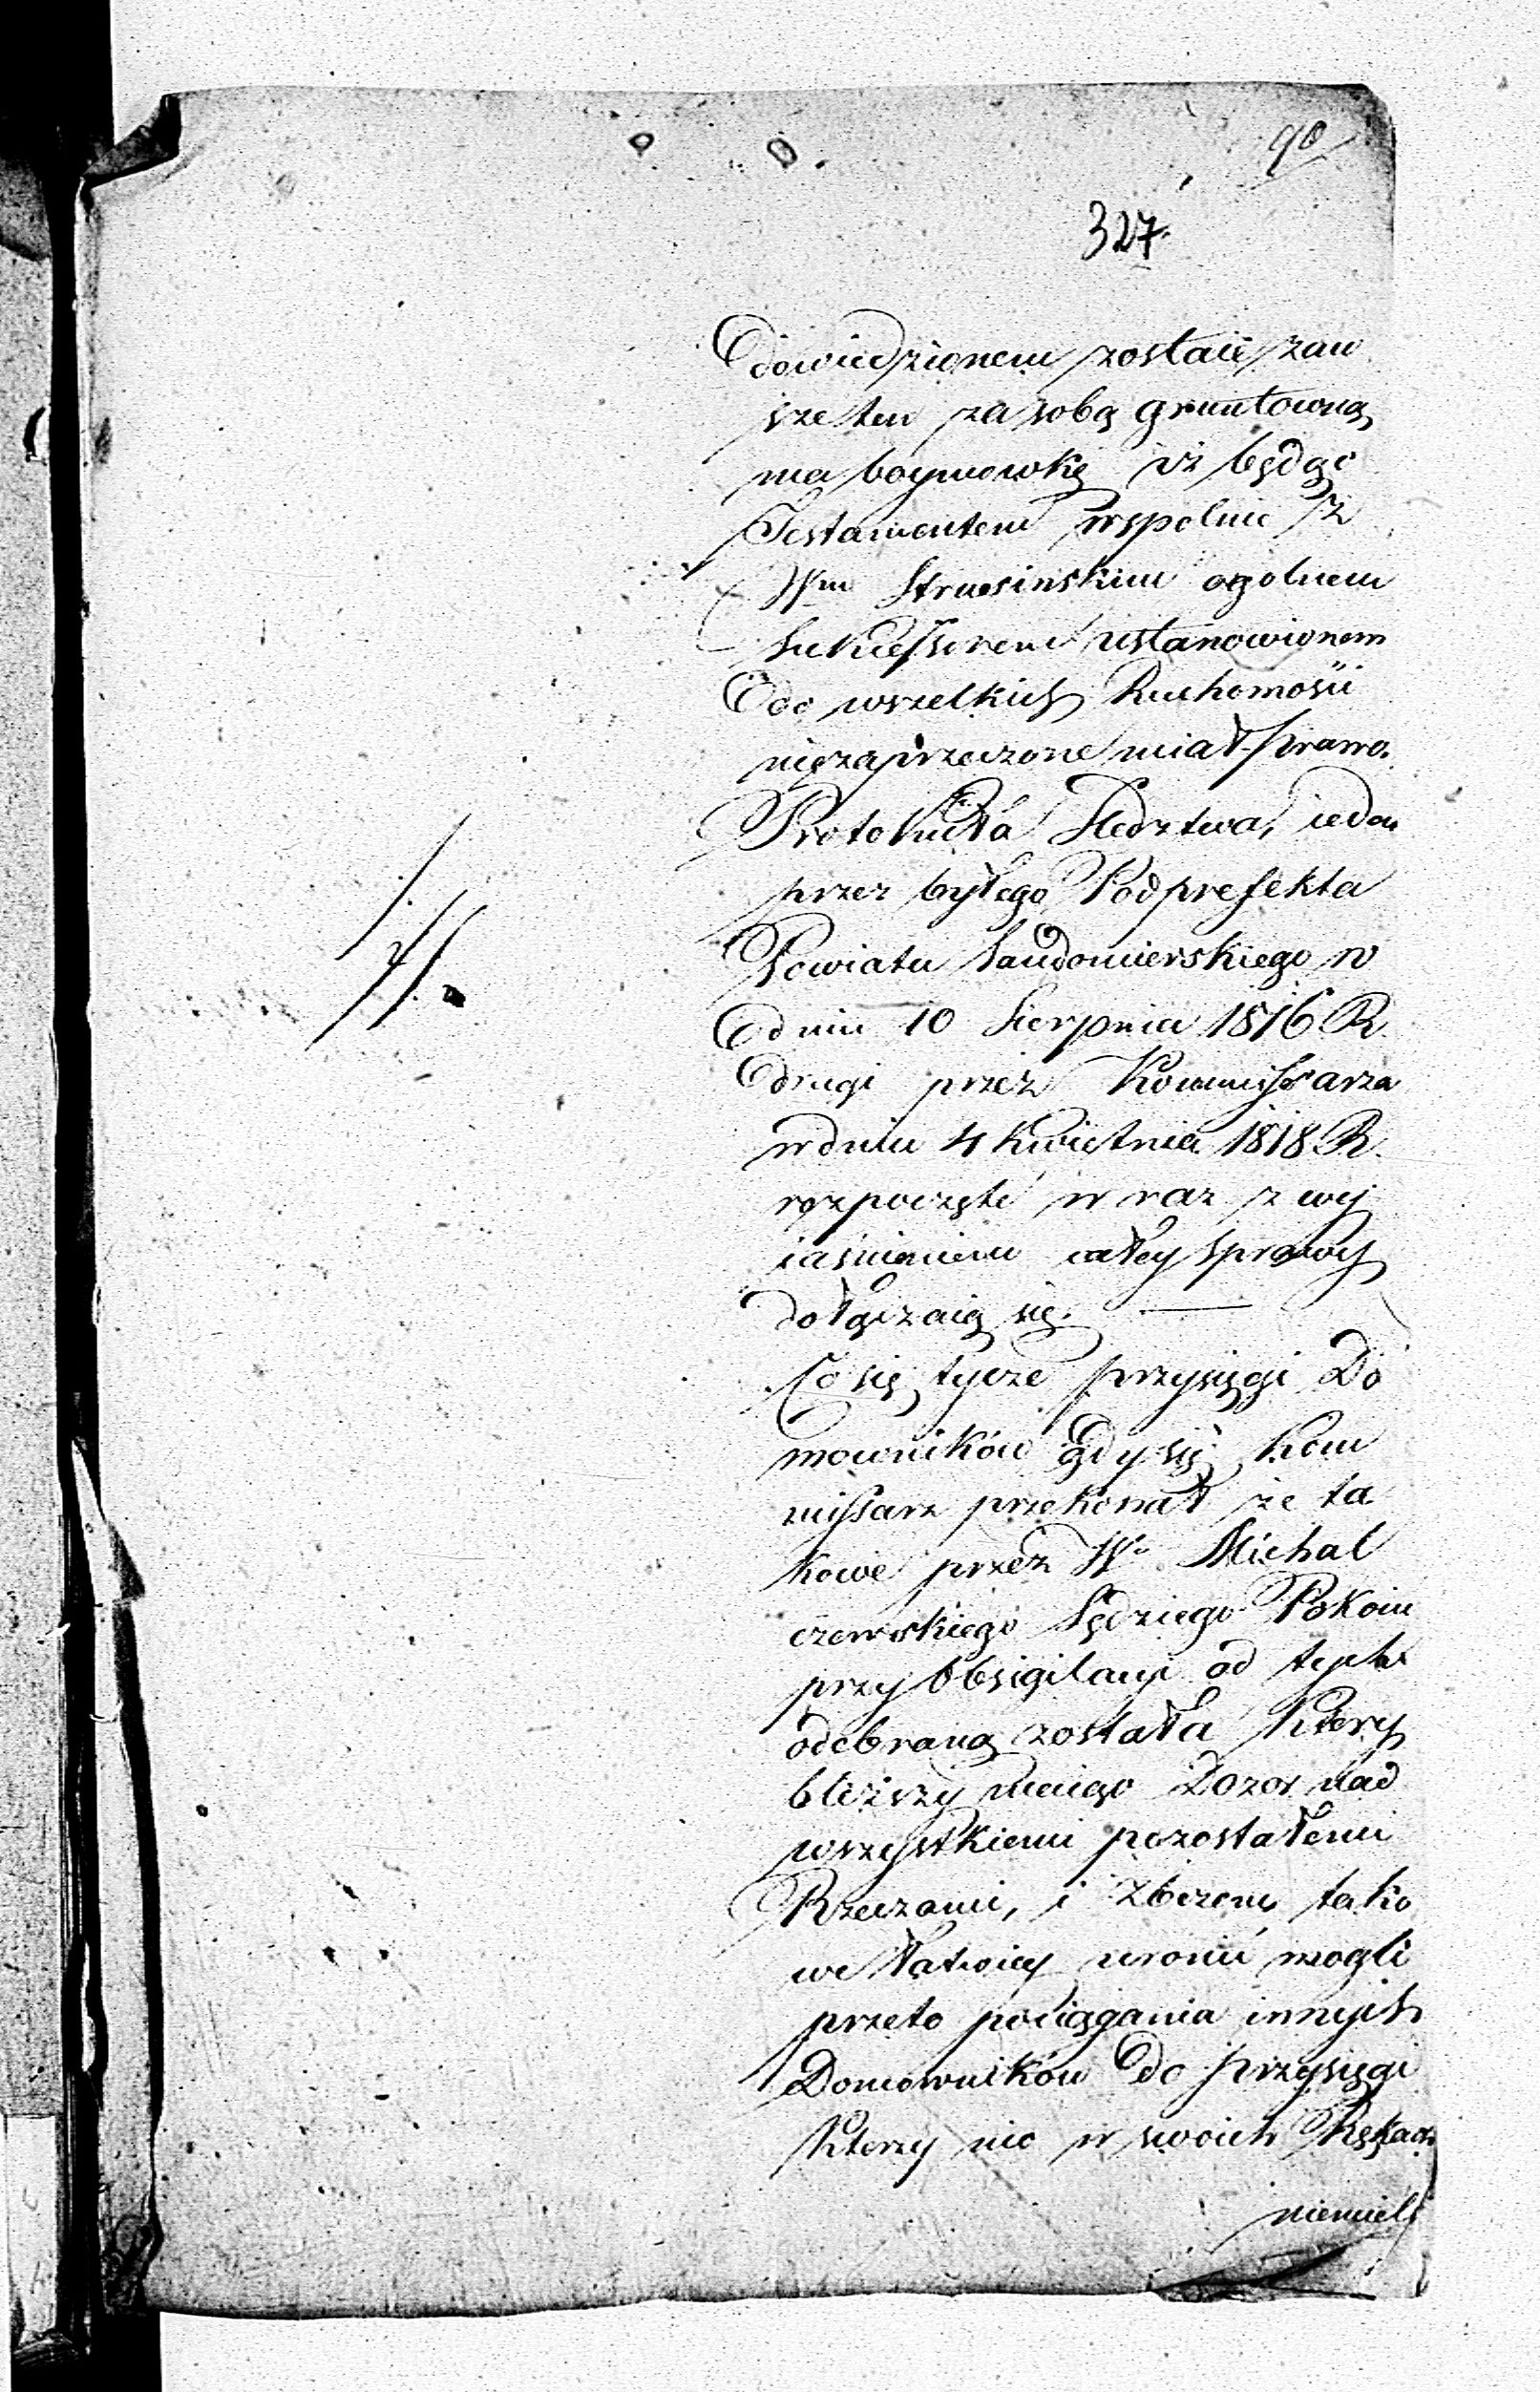 90
327.
dowiedzionem zostaie zaw
sze ten za sobą gruntowną
ma boymowkę iż będąc
Testamentem wspolnie z
Wm Strusinskim ogolnem
Sukcessorem ustanowionem
do wszelkich Ruchomości
niezaprzeczone miał prawo.
Protokuła Sledztwa, ieden
przez byłego Podprefekta
Powiatu Sandomierskiego w
dniu 10 Sierpnia 1816 R.
drugi przez Kommissarza
w dniu 4 Kwietnia 1818 R.
rozpoczęte w raz z wy
iaśnieniem całey sprawy
dołączaią się.
Co się tycze przysięgi Do
mowników gdy się Kom
missarz przekonał że ta
kowe przez Wo Michal
czewskiego Sędziego Pokoiu
przy Obsigilacyi od tych
odebraną została Którzy
bliższy maiąc Dozor nad
wszystkiemi pozostałemi
Rzeczami, i Zbiorem tako
we łatwiey uronić mogli
przeto pociągania innych
Domowników do przysięgi
Którzy nic w swoich Rękach
niemieli